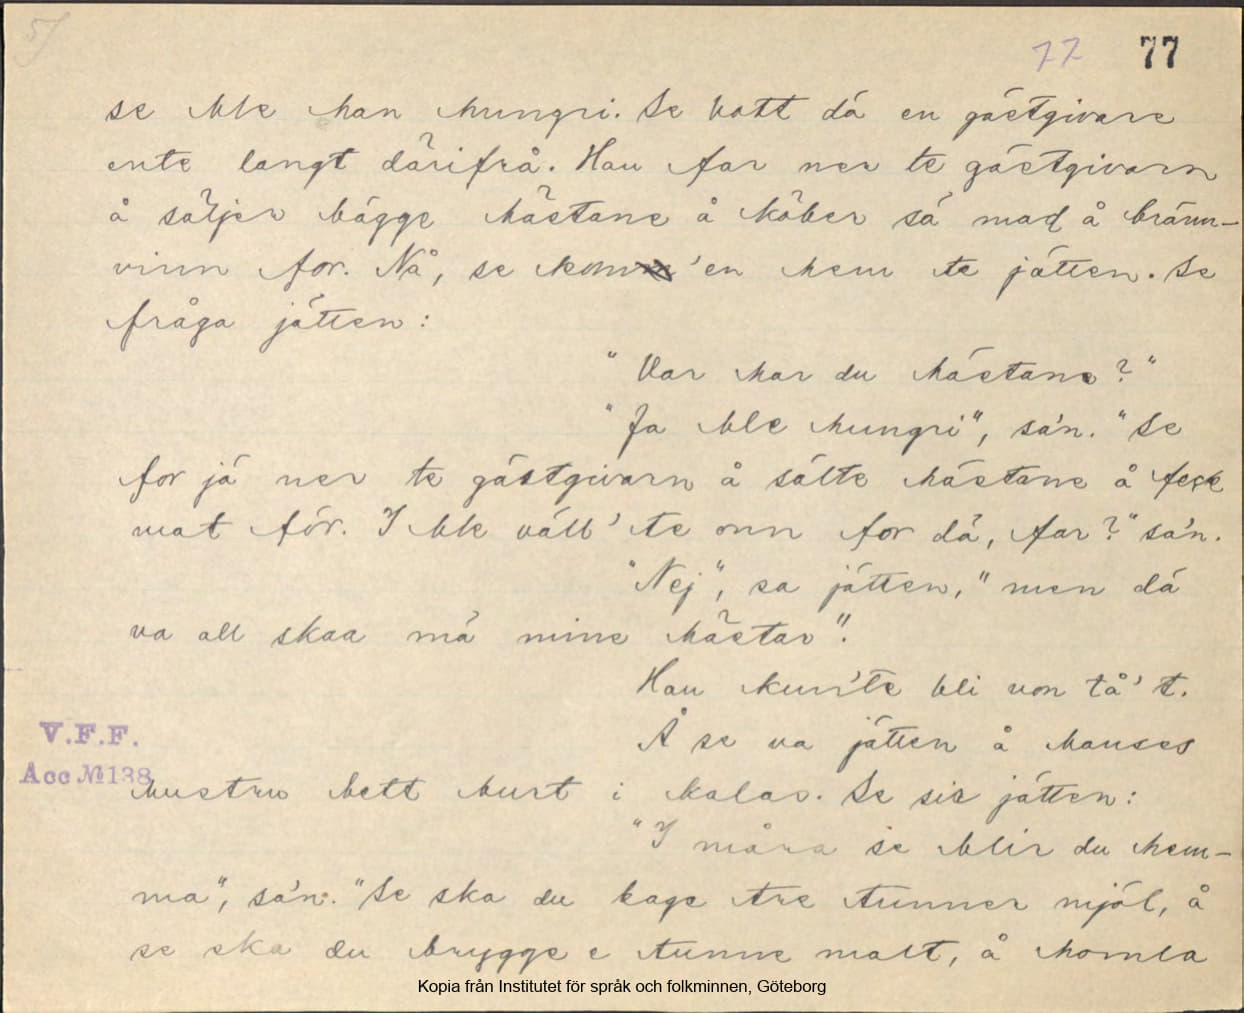 5/
77 77
se ble han hungri. Se vatt dä en gästgivare
ente langt därifrå. Han far ner te gästgivarn
å säljer bägge hästane å köber sä mad å bränn-
vinn for. Nå, se kom 'en hem te jätten. Se
fråga jätten:
"Var har du hästane?"
"Ja ble hungri", sa'n. "Se
for jä ner te gästgivarn å sälte hästane å feck
mat för. I ble väll' te onn for dä, far?" sa'n.
"Nej", sa jätten, "men dä
va all skaa mä mine hästar".
Han kun'te bli von tå' t.
Å se va jätten å hanses
V.F.F.
Acc №138
hustru bett burt i kalas. Se sir jätten:
"I måra se blir du hem-
ma", sa'n. "Se ska du bage tre tunner mjöl, å
se ska du brygge e tunne malt, å homla
Kopia från Institutet för språk och folkminnen, Göteborg